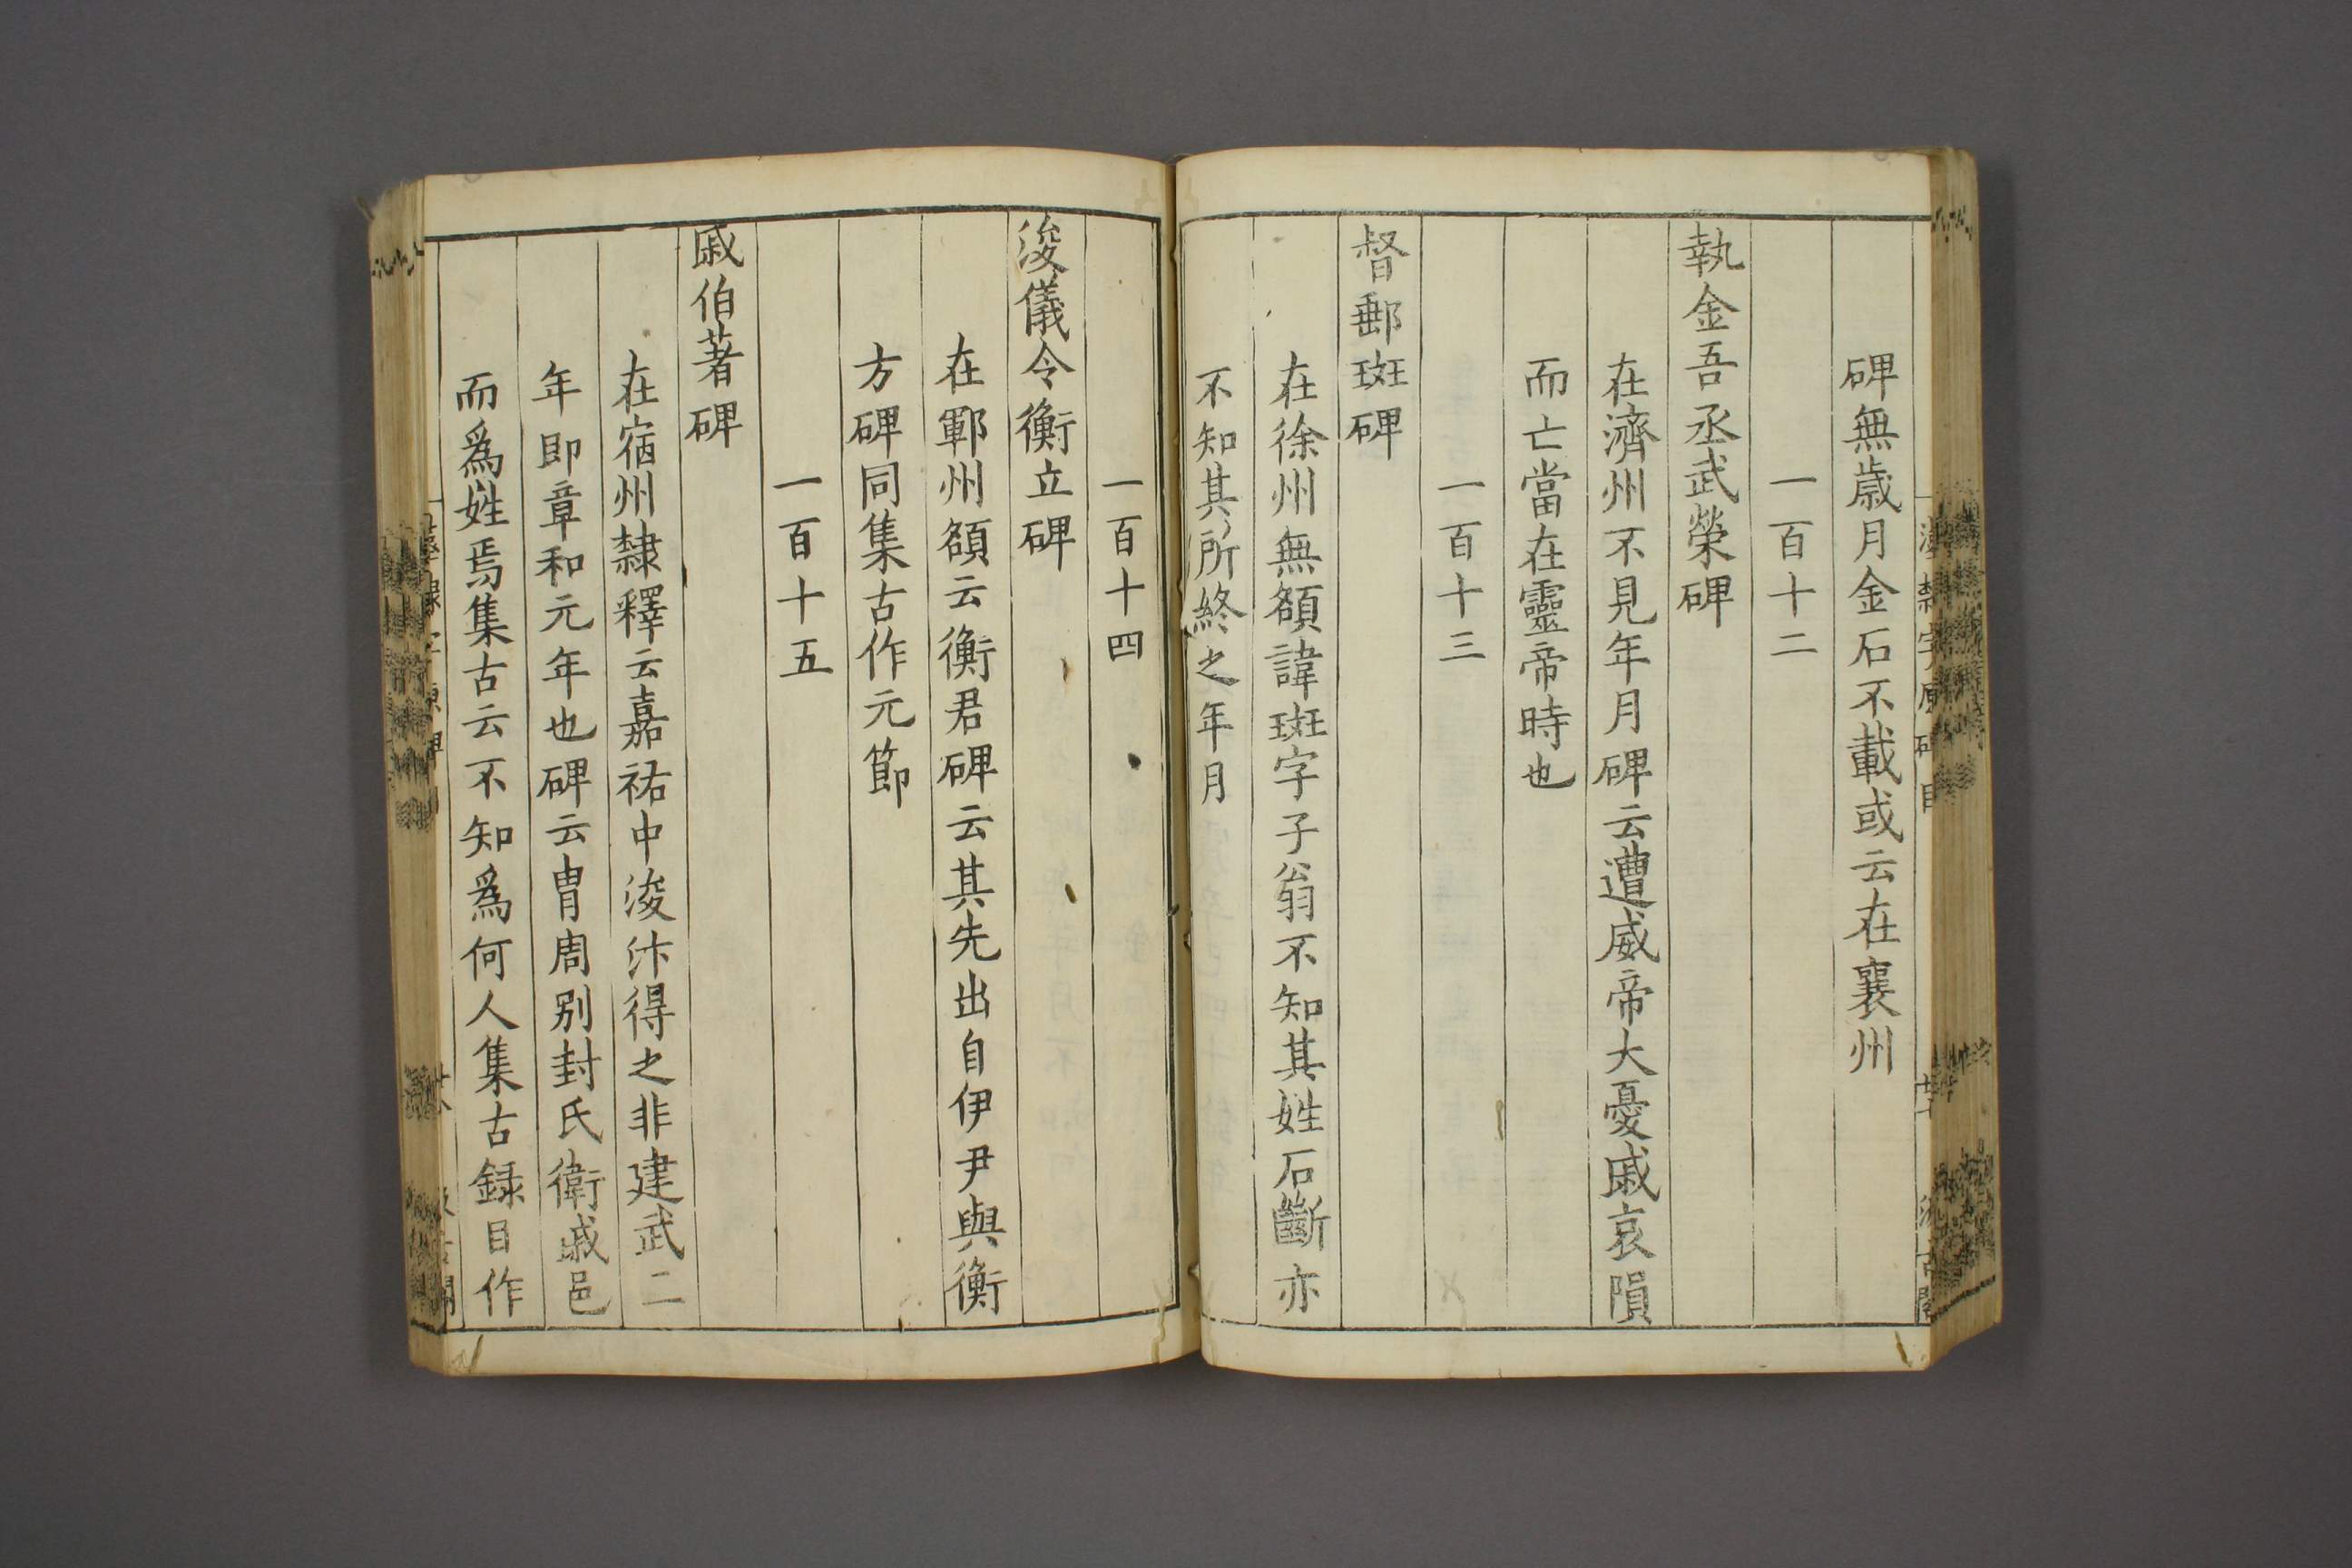 碑無歲月金石不載或云在襄州
一百十二
執金吾丞武榮碑
在濟州不見年月碑云遭威帝大憂戚哀隕
而亡當在靈帝時也
一百十三
督郵斑碑
在徐州無額諱斑字子翁不知其姓石斷亦
不知其所終之年月
一百十四
浚儀令衡立碑
在鄆州額云衡君碑云其先出自伊尹與衡
方碑同集古作元節
一百十五
戚伯著碑
在宿州隸釋云嘉祐中浚汴得之非建武二
年即章和元年也碑云胄周别封氏衛戚邑
而爲姓焉集古云不知爲何人集古録目作